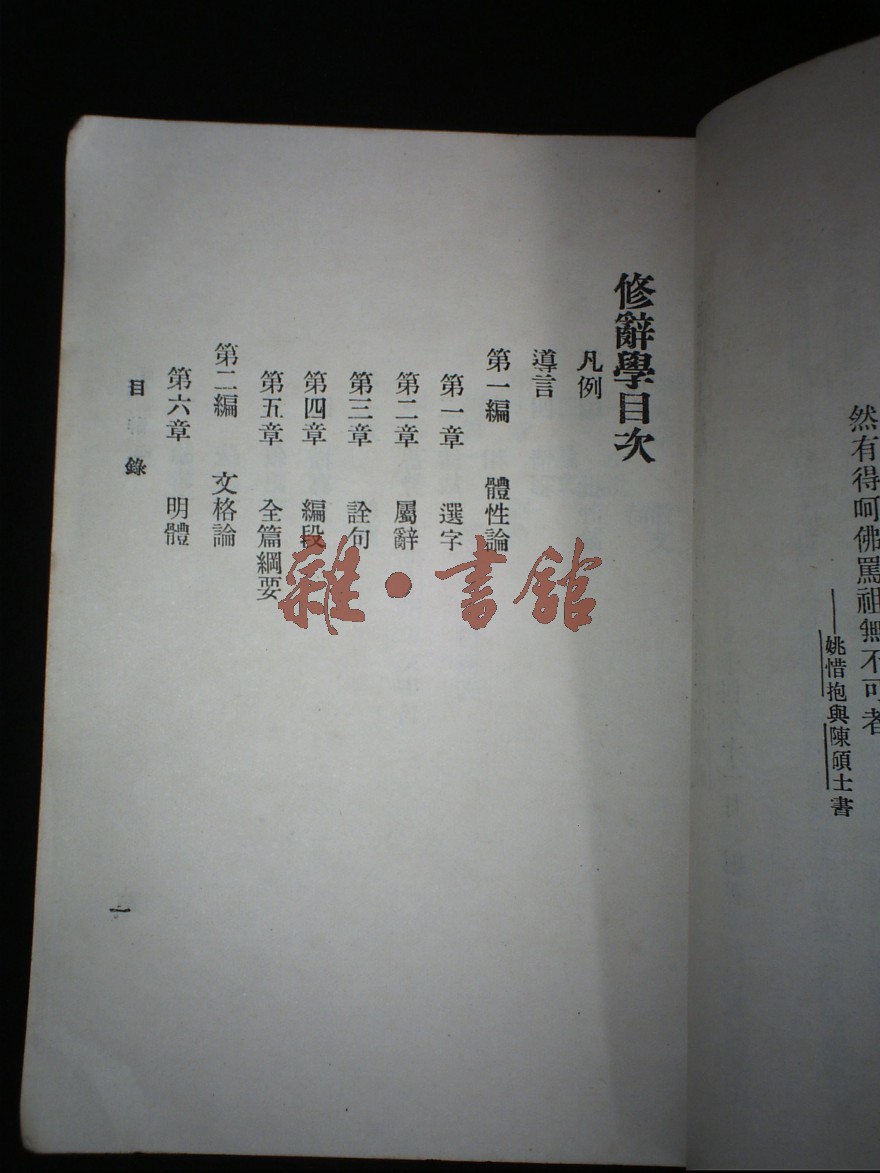 然有得呵佛罵祖無不可者
——姚惜抱與陳碩士書
修辭學目次
凡例
導言
第一編 體性論
第一章 選字
第二章 屬辭
第三章 詮句
第四章 編段
第五章 全篇綱要
第二編 文格論
第六章 明體
目錄
一
雜·書館